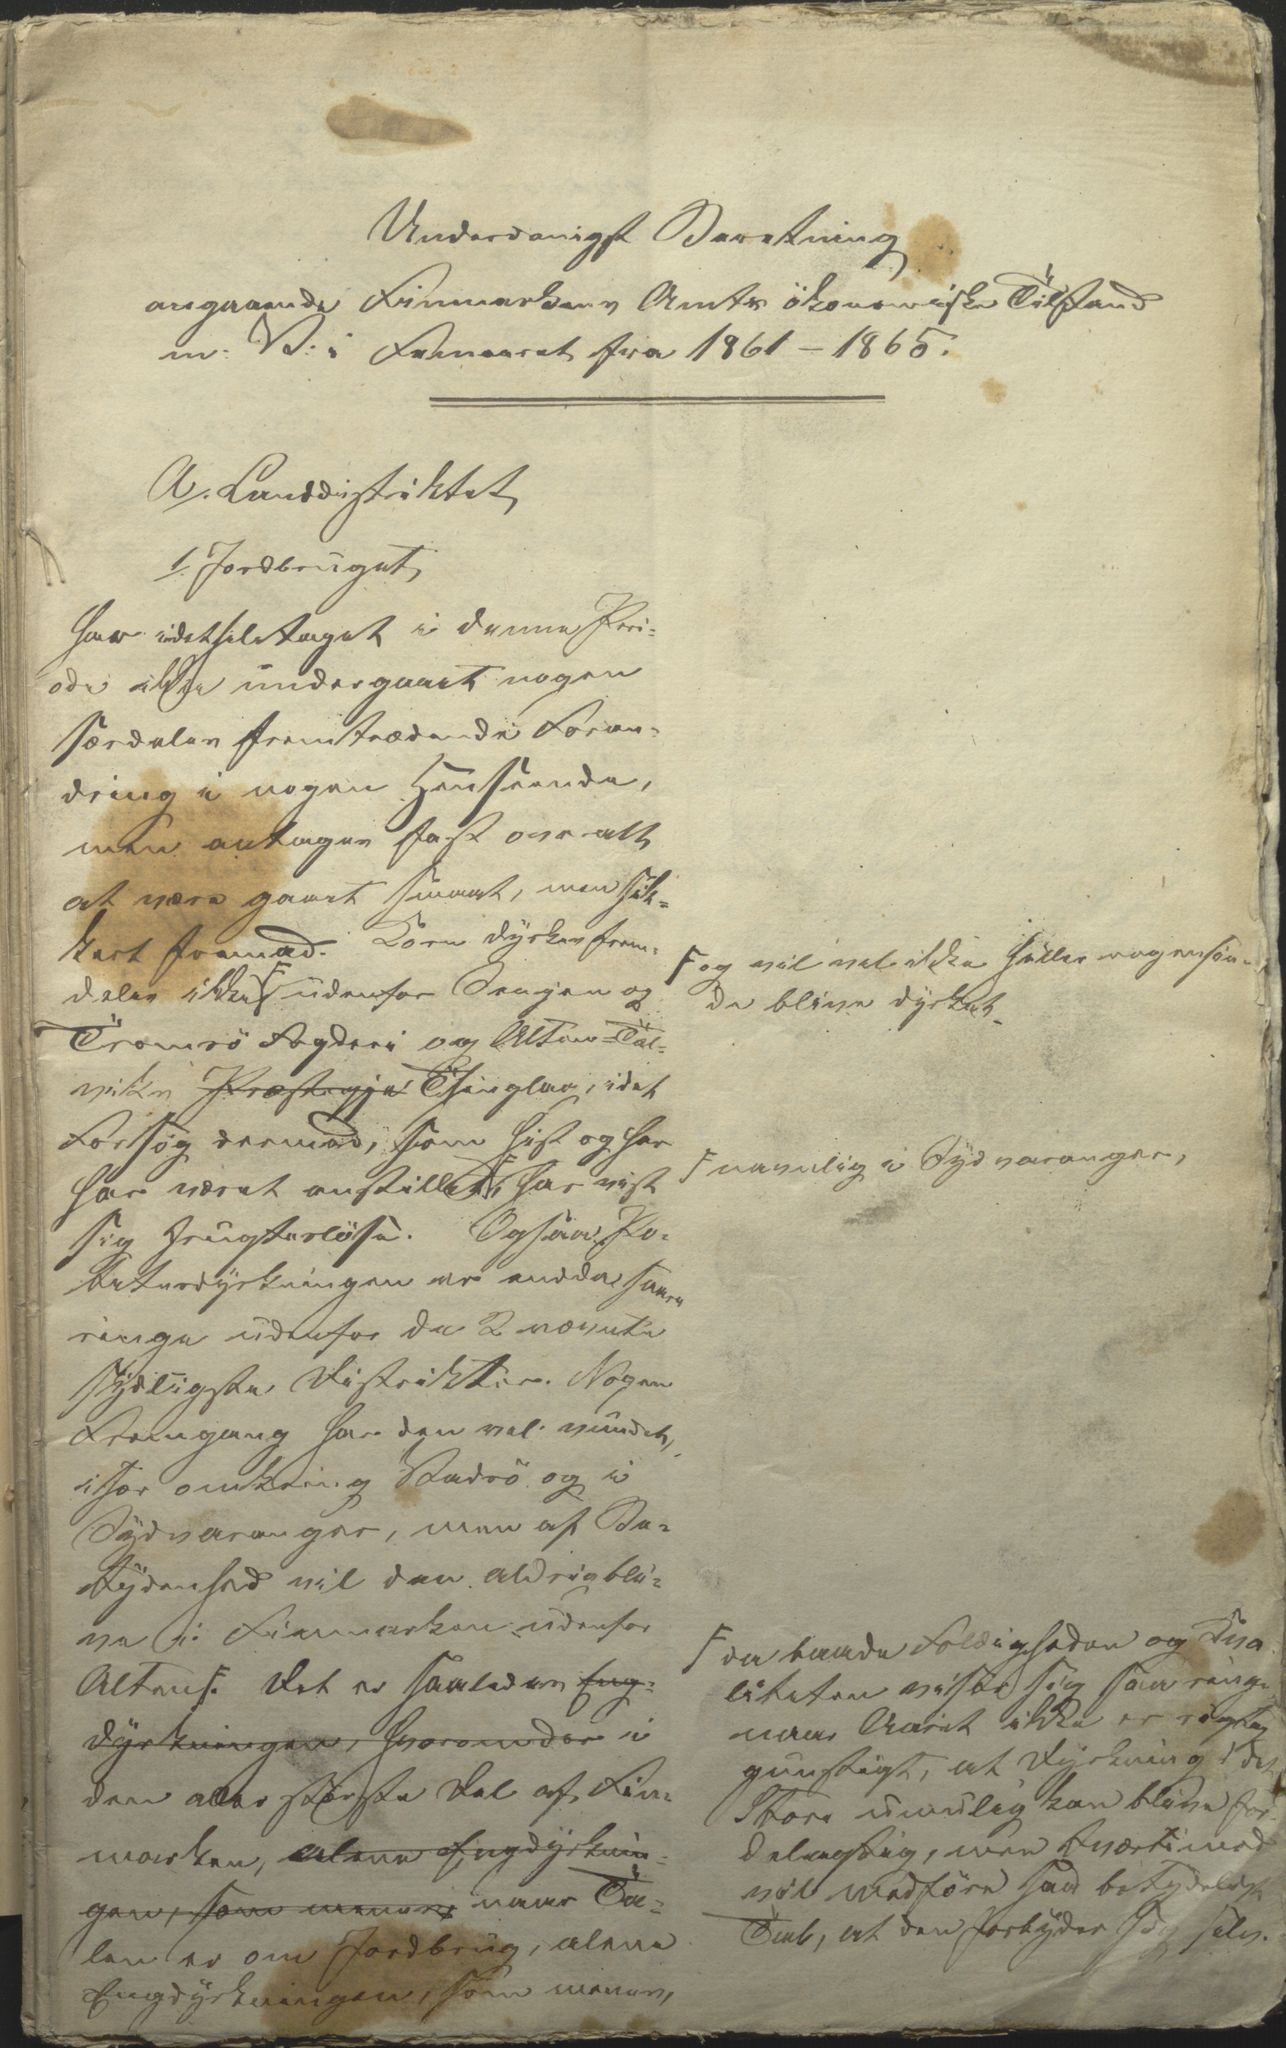 Underdanigst Beretning
angaaende Finmarkens Amts ökonomiske Tilstand
m. V. i Femaaret fra 1861 – 1865.
A. Landdistriktet,
1. Jordbruget,
har idetheletaget i denne Peri-
ode ikke undergaaet nogen
særdeles fremtrædende Foran-
dring i nogen Henseende,
men antages fast overalt
at være gaaet smaat, men sik-
kert fremad. Korn dyrkes frem-
deles ikke F udenfor Senjen og
Tromsö Fogderi og Alten-Tal-
viks Præstegje Thinglag, idet
Forsög dermed, som hist og her
har været anstillet F, har vist
sig frugteslöse. Ogsaa Po-
tetesdyrkningen er endda saare
ringe udenfor de 2 nævnte
sydligste Distrikter. Nogen
Fremgang har den vel vundet,
især omkring Vadsö og i
Sydvaranger, men af Be-
tydenhed vil den aldrig bli-
ve i Finmarken udenfor
Alten F. Det er saaledes Eng-
dyrkningen, hvorom der i
den aller störste Del af Fin-
marken, alene Engdyrknin-
gen, som menes naar Ta-
len er om Jordbrug, alene
Engdyrkningen, som menes,
F og vil vel ikke heller nogensin-
de blive dyrket.
F navnlig i Sydvaranger,
F da baade Foldigheden og Kva
liteten viser sig saa ringe
naar Aaret ikke er rigtig
gunstigt, at Dyrkning i det
Store umulig kan blive for
delagtig, men tværtimod
vil medföre saa betydeligt
Tab, at den forbyder sig selv.